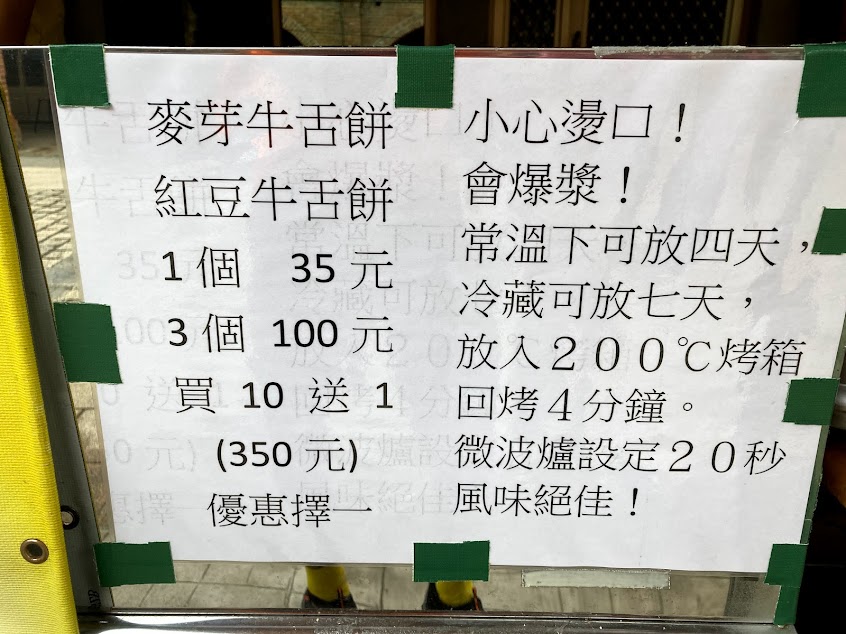 麥芽牛舌餅
紅豆牛舌餅
1個 35元
3個 100元
買 10 送 1
(350元)
優惠擇一
小心燙口！
會爆漿！
常溫下可放四天，
冷藏可放七天，
放入２００℃烤箱
回烤４分鐘。
微波爐設定２０秒
風味絕佳！